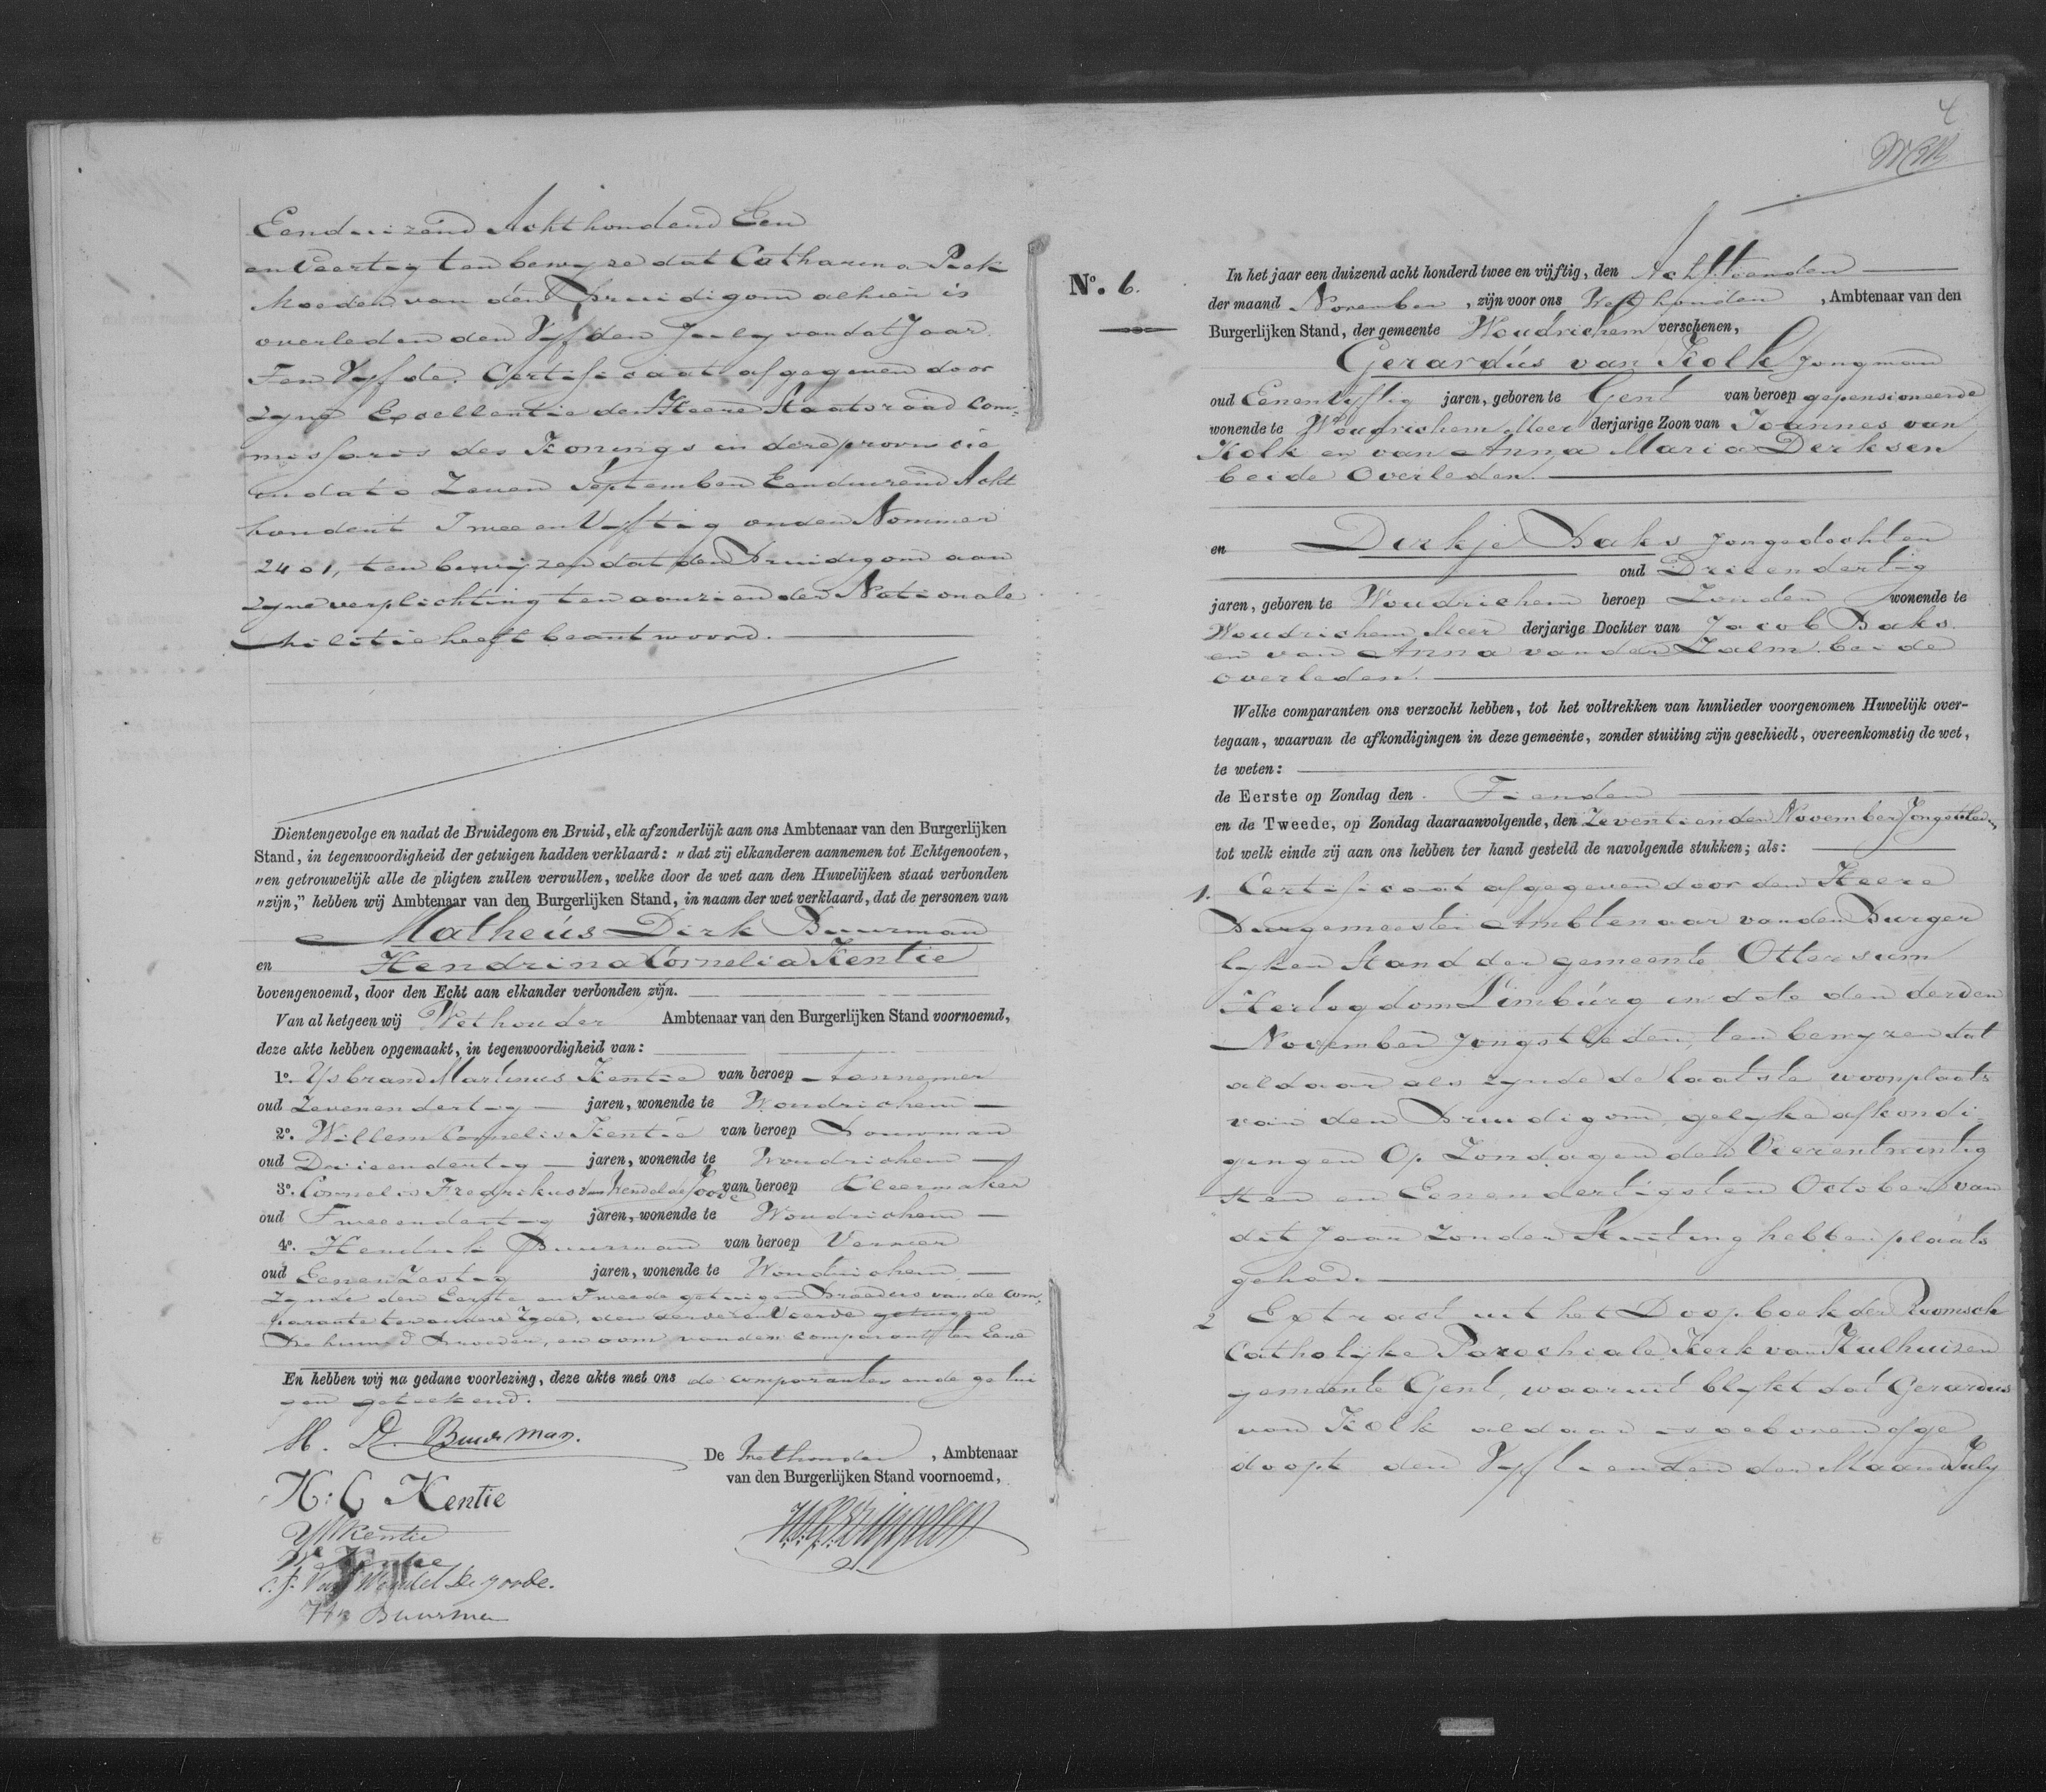 Eenduizend Achthonderd Een
en Veertig ten bewyze dat Catharina Pock
Moeder van den Bruidigom alhier is
overleden den Vyfden July van dat Jaar.
Ten Vyfde. Certificaat afgegeven door
zyne Excellentie den Heere Staatsraad Com-
missaris des Konings in dese provincie
in dato Zeven September Eenduizend Acht
hondert Twee en Vyftig onder Nommer
2401, ten bewyzen dat den Bruidigom aan
zyne verplichting ten aanzien der Nationale
Militie heeft beantwoord.
Dientengevolge en nadat de Bruidegom en Bruid, elk afzonderlijk aan ons Ambtenaar van den Burgerlijken
Stand, in tegenwoordigheid der getuigen hadden verklaard: „dat zij elkanderen aannemen tot Echtgenooten,
„en getrouwelijk alle de pligten zullen vervullen, welke door de wet aan den Huwelijken staat verbonden
„zijn," hebben wij Ambtenaar van den Burgerlijken Stand, in naam der wet verklaard, dat de personen van
Matheús Dirk Buurman
en Hendrina Cornelia Kentie
bovengenoemd, door den Echt aan elkander verbonden zijn.
Van al hetgeen wij Wethouder Ambtenaar van den Burgerlijken Stand voornoemd,
deze akte hebben opgemaakt, in tegenwoordigheid van:
1o. Ysbrand Martinus Kentie van beroep Aannemer
oud Zevenendertig jaren, wonende te Woudrichem
2o. Willem Cornelis Kentie van beroep Bouwman
oud Drieendertig jaren, wonende te Woudrichem
3o. Cornelis Fredrikus van Wendel de Joode van beroep Kleermaker
oud Tweeendertig jaren, wonende te Woudrichem
4o. Hendrik Buurman van beroep Verwer
oud Eenenzestig jaren, wonende te Woudrichem
Zynde den Eerste en Tweede getuigen Broeders van de Com-
parante ter andere Zyde, den derde en Vierde getuigen
Behuwd Broeder, en oom van den comparant ter Eene
En hebben wij na gedane voorlezing, deze akte met ons de comparanten en de getui
gen geteekend.
M. D. Buurman.
De Wethouder, Ambtenaar
van den Burgerlijken Stand voornoemd,
H: C Kentie
YM Kentie
W C Kentie
C. F. Van Wendel de Joode.
Hk Buurman
4
No. 6.
In het jaar een duizend acht honderd twee en vijftig, den Achttienden
der maand November, zijn voor ons Wethouder, Ambtenaar van den
Burgerlijken Stand, der gemeente Woudrichem verschenen,
Gerardús van Kolk Jongman
oud Eenenvyftig jaren, geboren te Gent van beroep gepensioneerde
wonende te Woudrichem Meer derjarige Zoon van Joannes van
Kolk en van Anna Maria Derksen
beide Overleden.
en Dirkje Baks Jongedochter
oud Drieendertig
jaren, geboren te Woudrichem beroep Zonder wonende te
Woudrichem Meer derjarige Dochter van Jacob Baks
en van Anna van der Zalm beide
overleden.
Welke comparanten ons verzocht hebben, tot het voltrekken van hunlieder voorgenomen Huwelijk over-
tegaan, waarvan de afkondigingen in deze gemeente, zonder stuiting zijn geschiedt, overeenkomstig de wet,
te weten:
de Eerste op Zondag den Tienden
en de Tweede, op Zondag daaraanvolgende, den Zeventienden November Jongstleden
tot welk einde zij aan ons hebben ter hand gesteld de navolgende stukken; als:
1. Certificaat afgegeven door den Heere
Burgemeester Ambtenaar van den Burger
lyken Stand der gemeente Ottersum
Hertogdom Limbúrg in dato den derden
November jongstleden, ten bewyzen dat
aldaar als zynde de laatste woonplaats
van den Bruidigom, gelyke afkondi-
gingen Op Zondagen den Vierentwintig
sten en Eenendertigsten October van
dit Jaar Zonder Stuiting hebben plaats
gehad.
2 Extract uit het Doopboek der Roomsch
Catholijke Parochiale Kerk van Hulhuizen
gemeente Gent, waaruit blykt dat Gerardus
van Kolk aldaar is geboren of ge
doopt den Vyftienden der Maand July